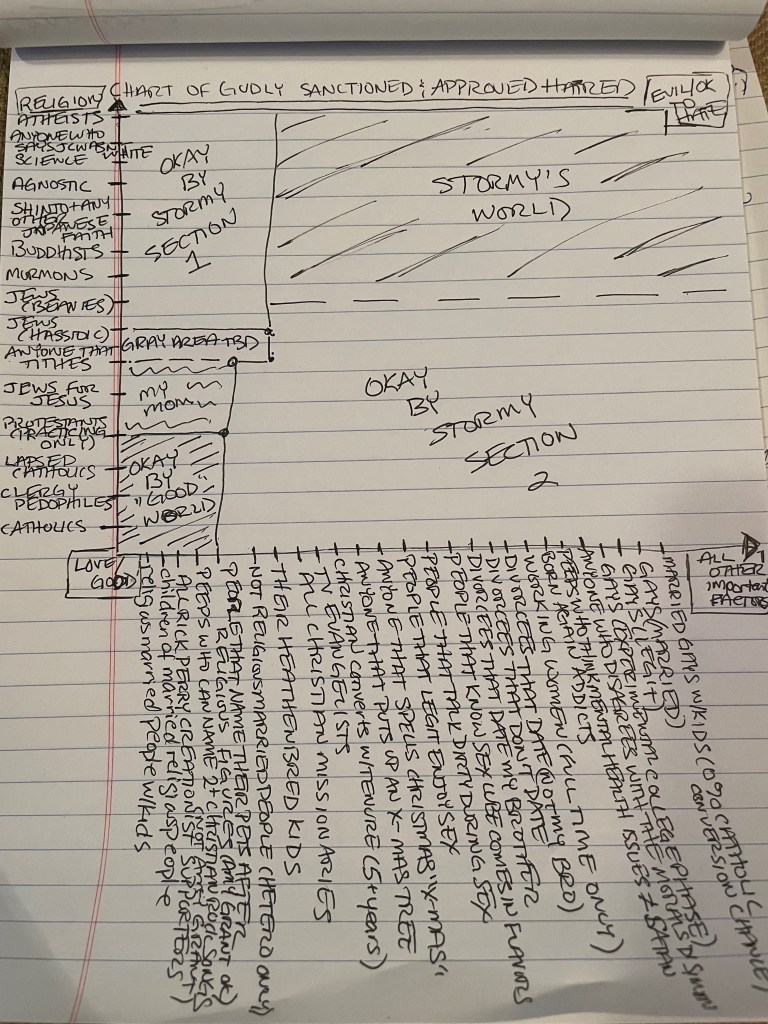 CHART OF GODLY SANCTIONED & APPROVED HATRED
EVIL/OK
TO
HATE
RELIGION
ATHEISTS
ANYONE WHO
SAYS JC WASN'T
WHITE
SCIENCE
AGNOSTIC
SHINTO + ANY
OTHER
JAPANESE
FAITH
BUDDHISTS
MORMONS
JEWS
(BEANIES)
JEWS
(HASSIDIC)
ANYONE THAT
TITHES
JEWS FOR
JESUS
PROTESTANTS
(PRACTICING
ONLY)
LAPSED
CATHOLICS
CLERGY
PEDOPHILES
CATHOLICS
LOVE/
GOOD
OKAY
BY
STORMY
SECTION
1
STORMY'S
WORLD
GRAY AREA TBD
MY
MOM
OKAY
BY
STORMY
SECTION
2
OKAY
BY
"GOOD"
WORLD
ALL
OTHER
important
FACTORS
religus married people w/kids
children of married religus people
ALL RICK PERRY CREATIONIST SUPPORTERS
PEEPS WHO CAN NAME 2+ CHRISTIAN ROCK SONGS
PEOPLE THAT NAME THEIR PETS AFTER
RELIGIOUS FIGURES (AMY GRANT OK)
NOT RELIGIOUS MARRIED PEOPLE (HETERO ONLY)
THEIR HEATHEN BRED KIDS
ALL CHRISTIAN MISSIONARIES
TV EVANGELISTS
CHRISTIAN CONVERTS W/TENURE (5+ YEARS)
ANYONE THAT PUTS UP AN X-MAS TREE
PEOPLE THAT SPELLS CHRISTMAS "X-MAS"
PEOPLE THAT LEGIT ENJOY SEX
PEOPLE THAT TALK DIRTY DURING SEX
DIVORCEES THAT KNOW SEX
DIVORCEES THAT DATE MY BROTHER
DIVORCEES THAT DON'T DATE
DIVORCEES THAT DATE (NOT MY BRO)
WORKING WOMEN (FULL-TIME ONLY)
BORN AGAIN ADDICTS
PEEPS WHO THINK MENTAL HEALTH ISSUES ≠ SATAN
ANYONE WHO DISAGREES WITH THE
GAYS (COPE IN DORM COLLEGE PHASE)
GAYS (LEGIT)
GAYS (MARRIED)
MARRIED GAYS W/KIDS (0% CATHOLIC
CONVERSION CHANCE)